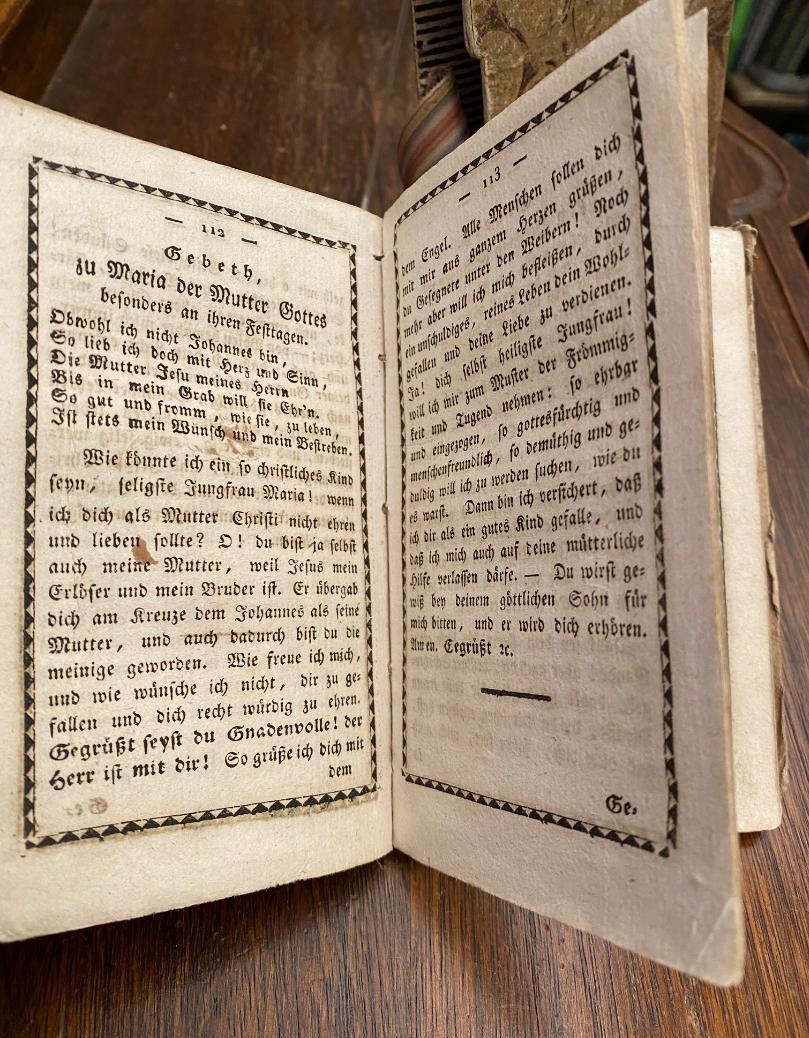 — 112 —
Gebeth,
zu Maria der Mutter Gottes
besonders an ihren Festtagen.
Obwohl ich nicht Johannes bin,
So lieb ich doch mit Herz und Sinn,
Die Mutter Jesu meines Herrn
Bis in mein Grab will sie Ehr'n.
So gut und fromm, wie sie, zu leben,
Ist stets mein Wunsch und mein Bestreben.
Wie könnte ich ein so christliches Kind
seyn, seligste Jungfrau Maria! wenn
ich dich als Mutter Christi nicht ehren
und lieben sollte? O! du bist ja selbst
auch meine Mutter, weil Jesus mein
Erlöser und mein Bruder ist. Er übergab
dich am Kreuze dem Johannes als seine
Mutter, und auch dadurch bist du die
meinige geworden. Wie freue ich mich,
und wie wünsche ich nicht, dir zu ge-
fallen und dich recht würdig zu ehren.
Gegrüßt seyst du Gnadenvolle! der
Herr ist mit dir! So grüße ich dich mit
dem
— 113 —
dem Engel. Alle Menschen sollen dich
mit mir aus ganzem Herzen grüßen,
du Gesegnete unter den Weibern! Noch
mehr aber will ich mich befleißen, durch
ein unschuldiges, reines Leben dein Wohl-
gefallen und deine Liebe zu verdienen.
Ja! dich selbst heiligste Jungfrau!
will ich mir zum Muster der Frömmig-
keit und Tugend nehmen: so ehrbar
und eingezogen, so gottesfürchtig und
menschenfreundlich, so demüthig und ge-
duldig will ich zu werden suchen, wie du
es warst. Dann bin ich versichert, daß
ich dir als ein gutes Kind gefalle, und
daß ich mich auch auf deine mütterliche
Hilfe verlassen därfe. — Du wirst ge-
wiß bey deinem göttlichen Sohn für
mich bitten, und er wird dich erhören.
Amen. Gegrüßt ꝛc.
Ge-